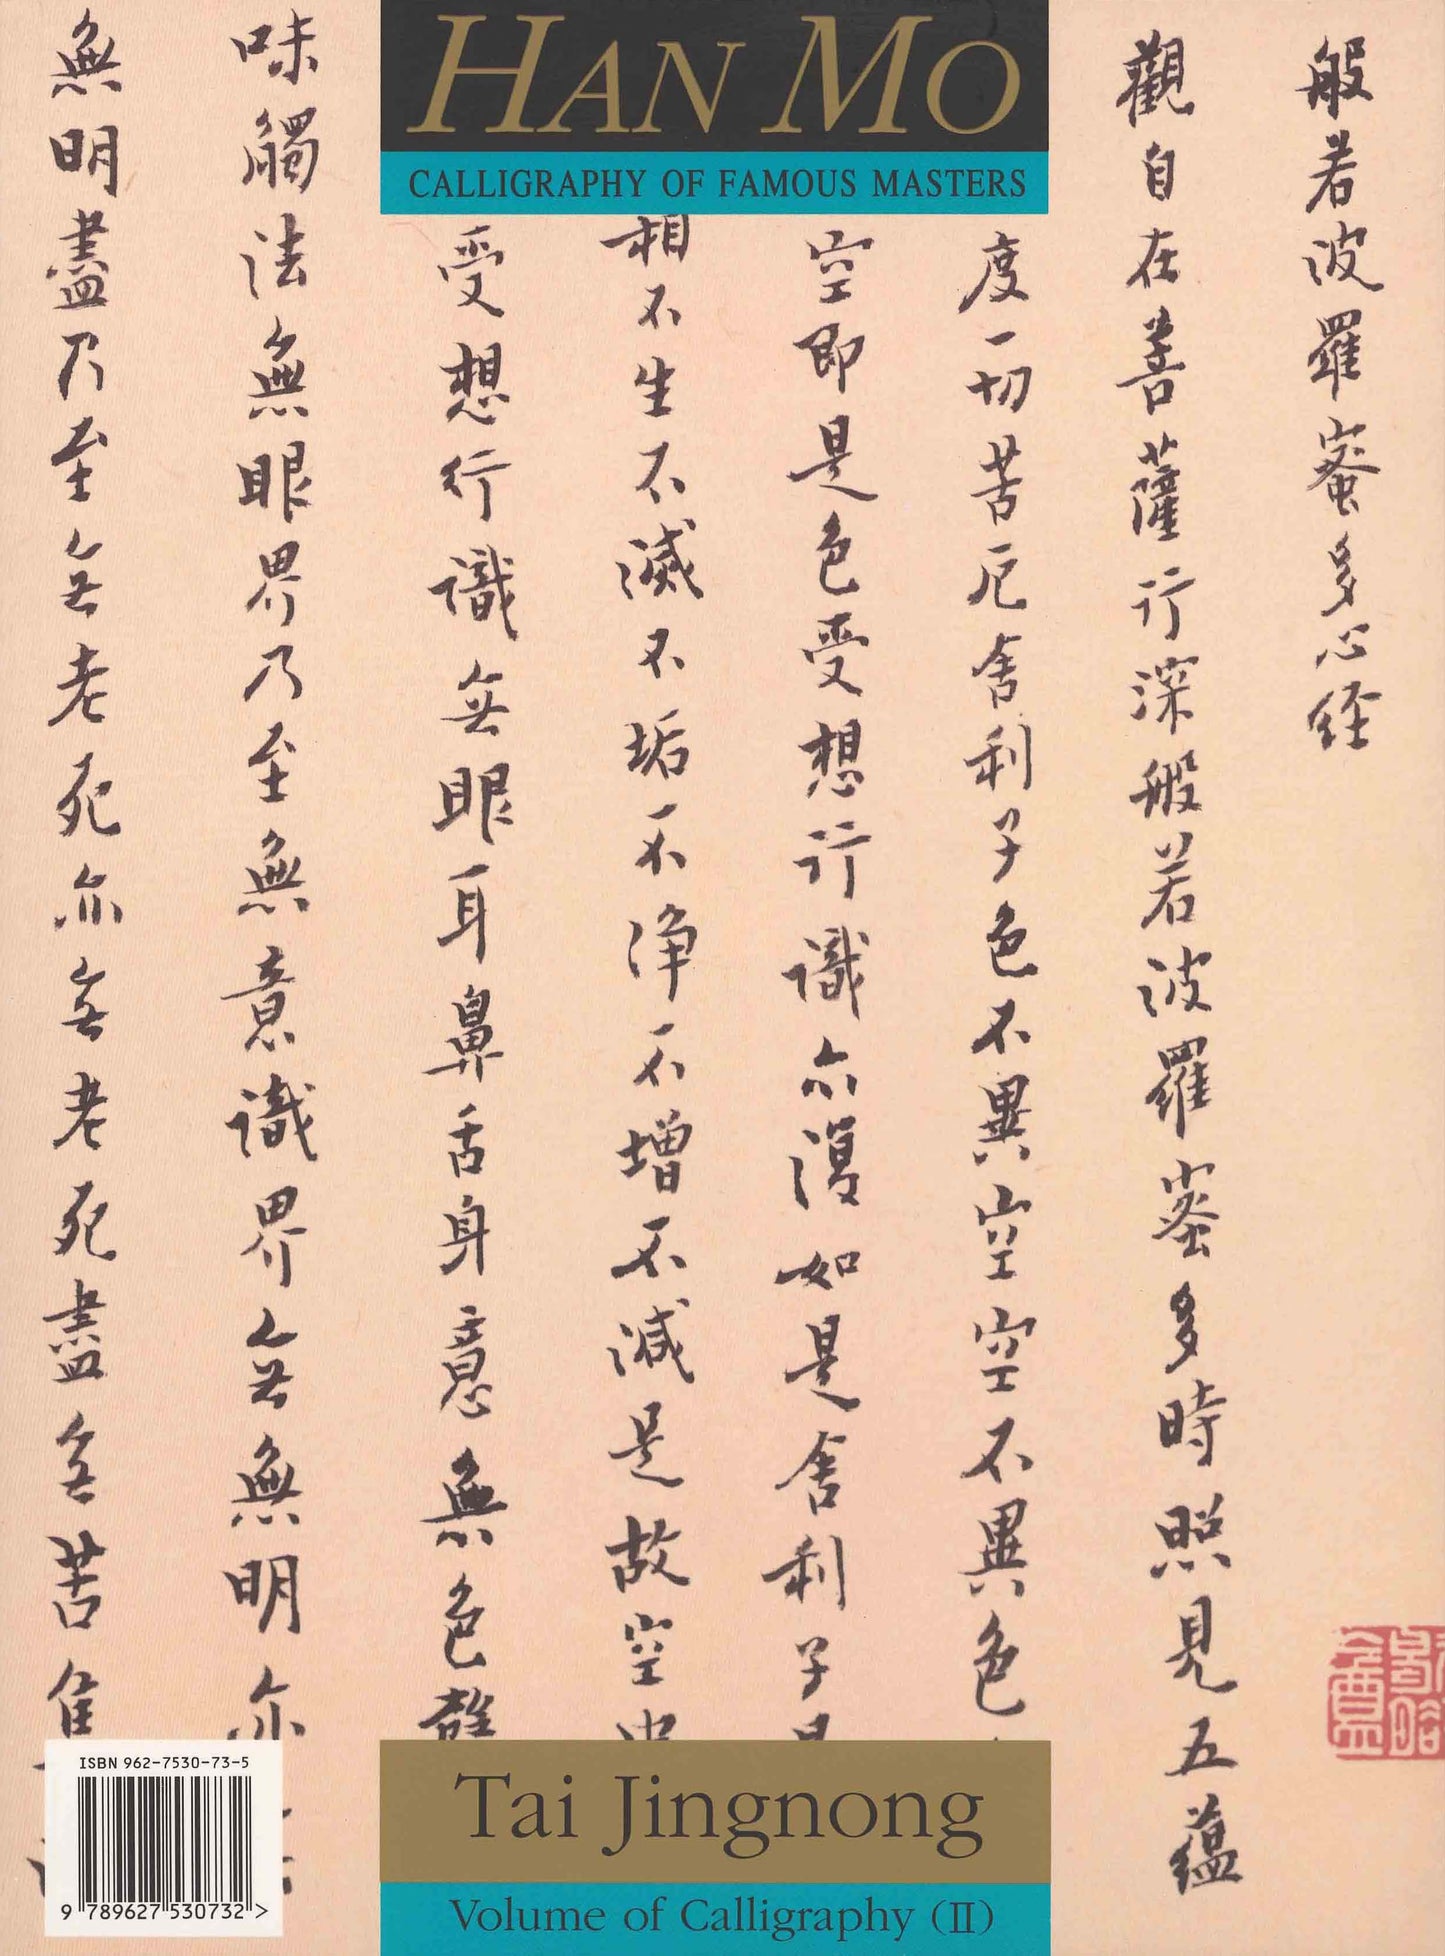 HAN MO
CALLIGRAPHY OF FAMOUS MASTERS
般若波羅蜜多心経
觀自在菩薩行深般若波羅蜜多時照見五蘊
度一切苦厄舍利子色不異空空不異色
空即是色受想行識亦復如是舍利子是
相不生不滅不垢不淨不增不減是故空中
受想行識無眼耳鼻舌身意無色聲
味觸法無眼界乃至無意識界無無明亦
無明盡乃至無老死亦無老死盡無苦集
Tai Jingnong
Volume of Calligraphy (II)
ISBN 962-7530-73-5
9 789627 530732 >